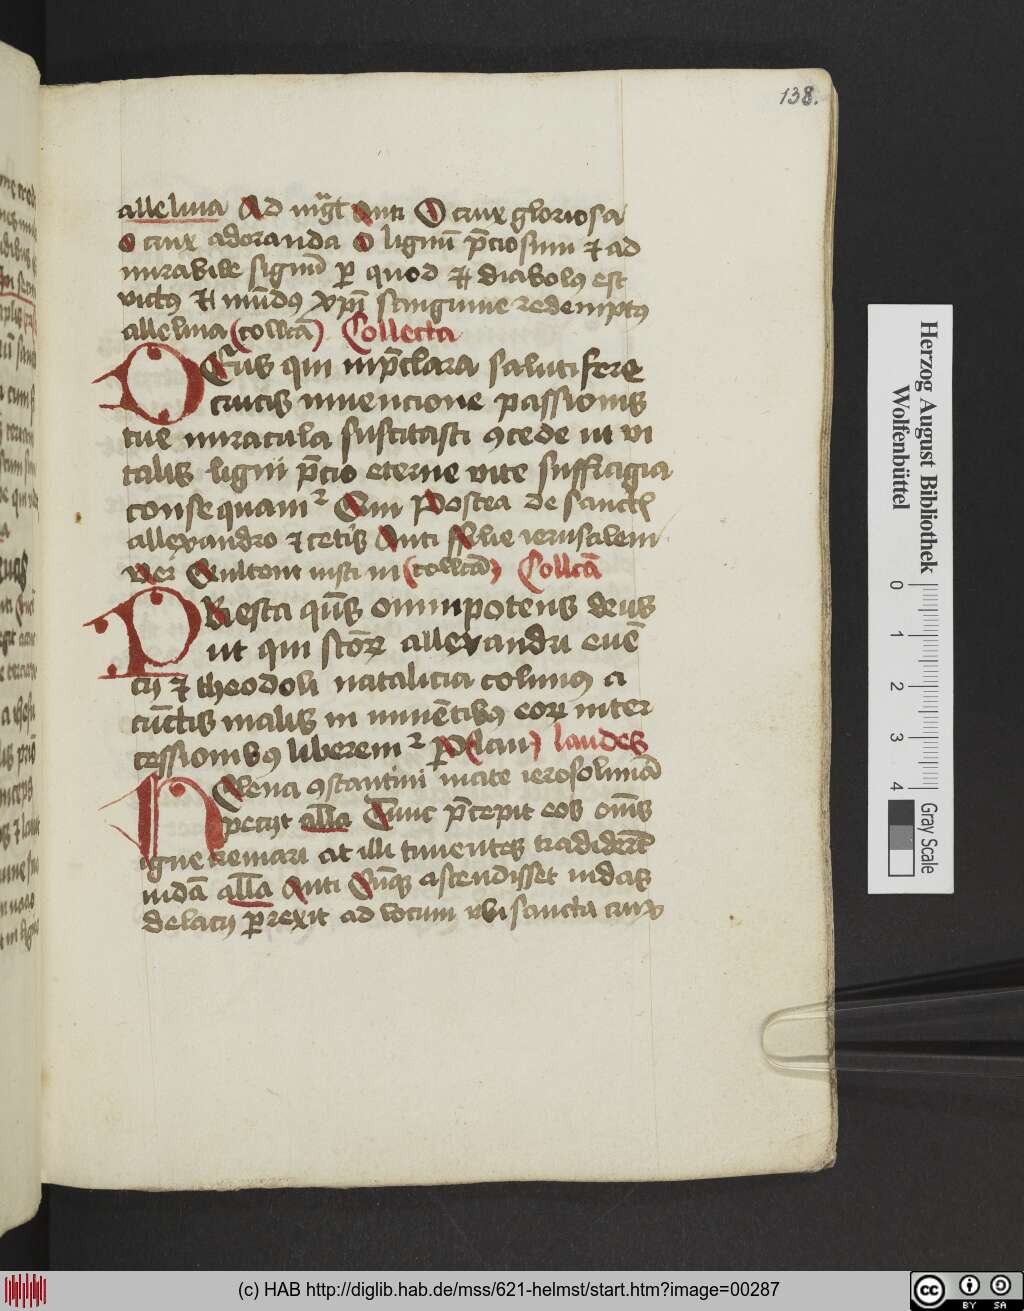 138.
alleluia Ad mgͣt Anti O crux gloriosa
o crux adoranda O lignū p̄ciosum ⁊ ad
mirabile signū per quod ⁊ diabolꝰ est
victꝰ ⁊ mūdꝰ xp̄i sanguine redemptꝰ
alleluia (collcā) Collecta
DEus qui in p̄clara salutifere
crucis invencione passionis
tue miracula suscitasti ꝯcede ut vi
talis ligni p̄cio eterne vite suffragia
consequamur Postea de sanctis
allexandro ⁊ cetis Anti filie ierusalem
ver Exultent iusti in (collcā) Collcā
PResta qūs omnipotens deus
ut qui sctōꝝ allexandri euē
cij ⁊ theodoli natalicia colimꝰ a
cūctis malis in minētibꝰ eoꝝ inter
cessionibꝰ liberemur laudes
HElena ꝯstantini mate ierosolimā
peciit all̄a Tunc p̄cepit eos om̄s
igne cremari at illi timentes tradiderūt
iudā all̄a Anti Cūqꝫ ascendisset iudas
de lacu perrexit ad locum ubi sancta crux
Herzog August Bibliothek
Wolfenbüttel
0 1 2 3 4
Gray Scale
(c) HAB http://diglib.hab.de/mss/621-helmst/start.htm?image=00287
cc BY SA